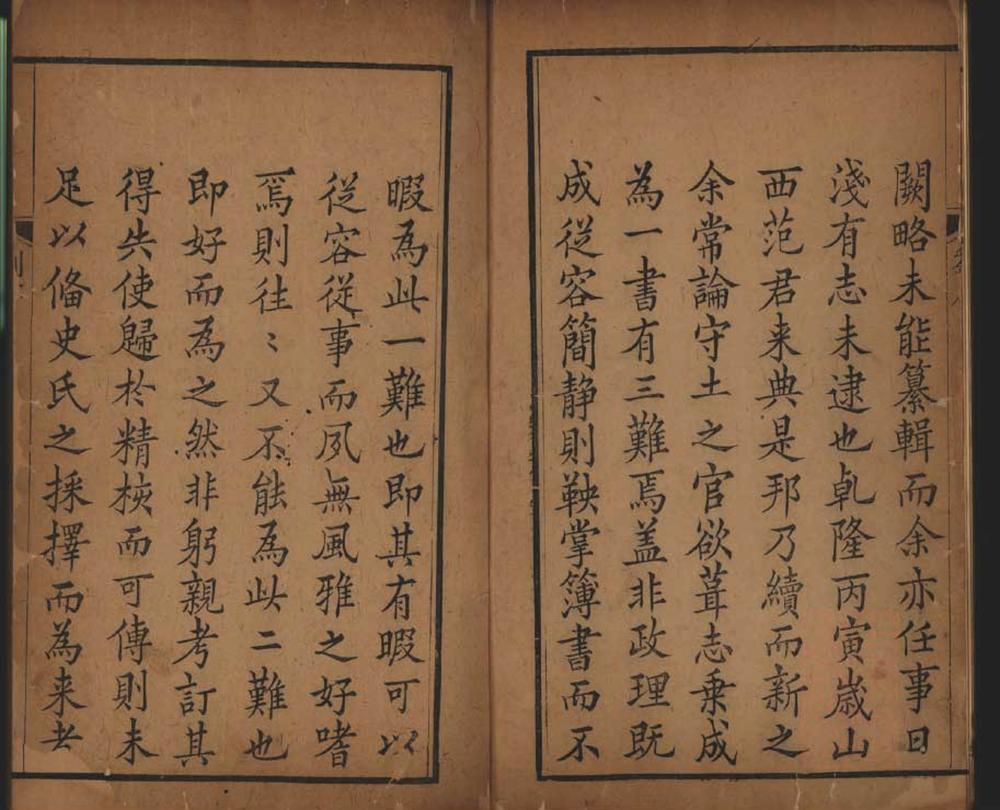 闕略未能纂輯而余亦任事日
淺有志未逮也乹隆丙寅歲山
西范君来典是邦乃續而新之
余常論守土之官欲葺志乗成
為一書有三難焉盖非政理既
成從容簡静則鞅掌簿書而不
暇為此一難也即其有暇可以
從容從事而夙無風雅之好嗜
焉則往〻又不能為此二難也
即好而為之然非躬親考訂其
得失使歸於精核而可傳則未
足以俻史氏之採擇而為来者